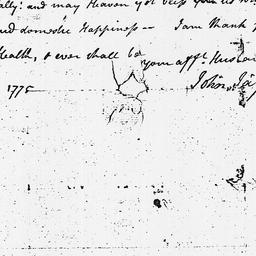 ally: and may Heaven yet bless
and domestic Happiness — I am thank
Health, & ever shall be
your afft. Husban
John Ja
1775